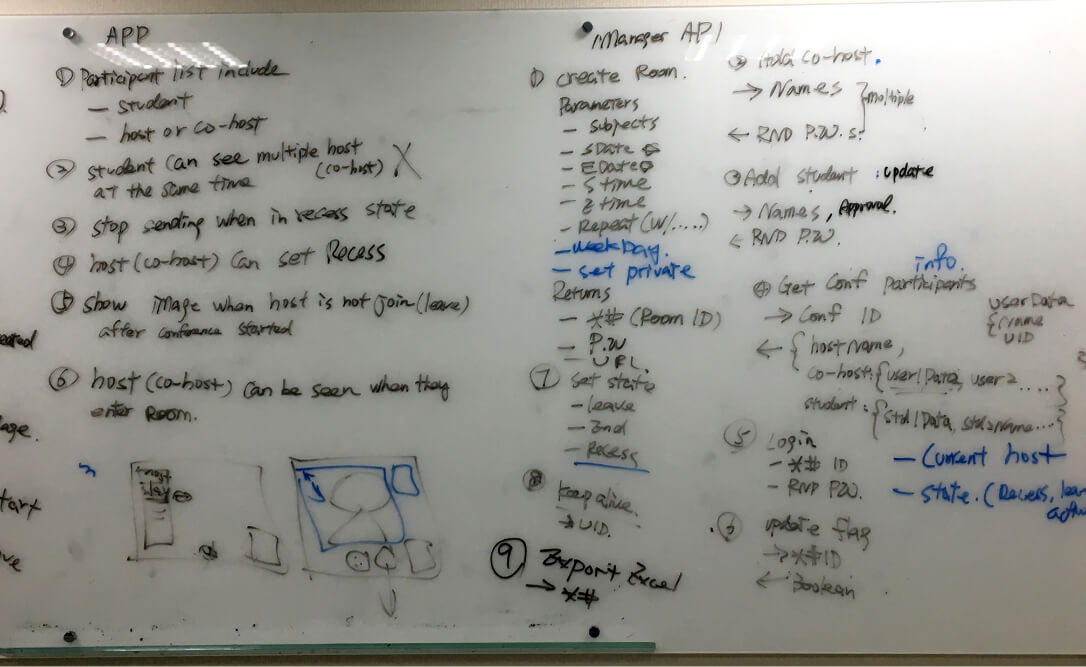 APP
① Participant list include
— student
— host or co-host
② student can see multiple host
(co-host) X
at the same time
③ stop sending when in recess state
④ host (co-host) can set Recess
⑤ show image when host is not join (leave)
after conference started
⑥ host (co-host) can be seen when they
enter Room.
Manager API
① create Room.
Parameters
— subjects
— SDate
— EDate
— S time
— E time
— Repeat (W/.....)
— weekDay.
— set private
Returns
— *# (Room ID)
— P.W
— URL.
⑦ Set state
— leave
— End
— Recess
⑧ keep alive.
→ UID.
⑨ Export Excel
→ *#
② Add co-host.
→ Names } multiple
← RND P.W.s.
③ Add student : update
→ Names, Approval.
← RND P.W.
info.
④ Get Conf participants
→ Conf ID
← { hostName,
co-host: {user1Data, user2 .....}
student: {std1Data, std2Name...}
userData
{ name
UID
⑤ Login
— *# ID
— RND P.W.
— Current host
— state. (Recess,
⑥ update flag
→ *# ID
← Boolean